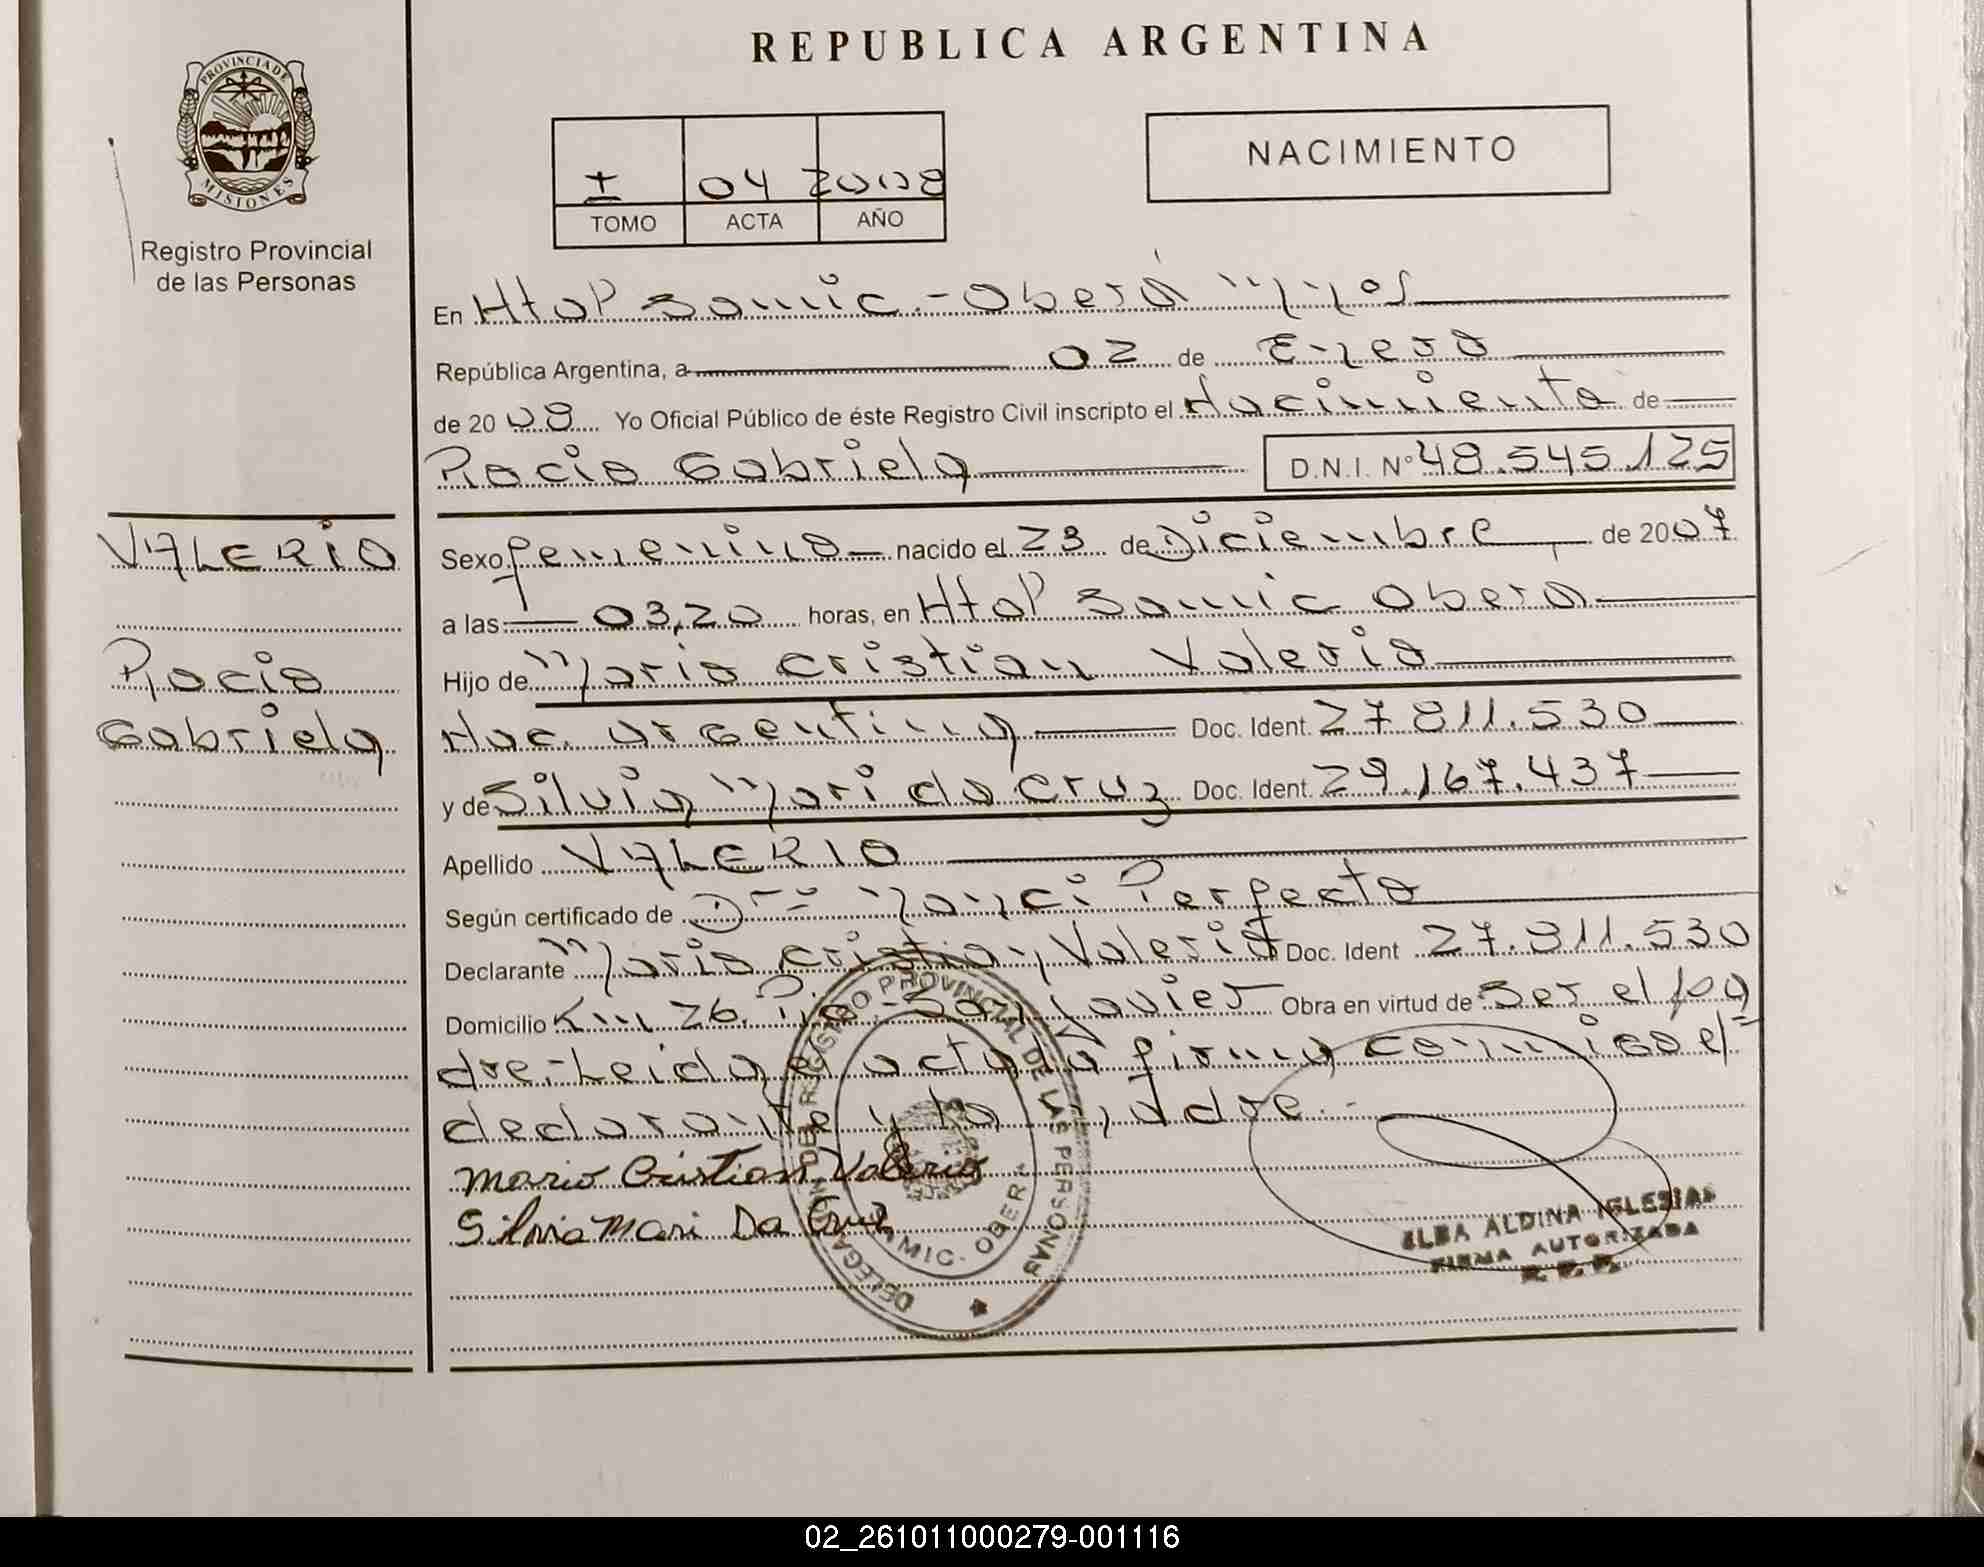 REPUBLICA ARGENTINA
PROVINCIA DE MISIONES
Registro Provincial
de las Personas
I 04 2008
TOMO ACTA AÑO
NACIMIENTO
En Htal Samic.- Oberá Mnes
República Argentina, a 02 de Enero
de 2008 Yo Oficial Público de éste Registro Civil inscripto el Nacimiento de
Rocio Gabriela D.N.I. Nº 48.545.125
VALERIO
Rocio
Gabriela
Sexo femenino nacido el 23 de Diciembre de 2007
a las 03,20 horas, en Htal Samic Obera
Hijo de Mario Cristian Valerio
Nac. argentina Doc. Ident. 27.811.530
y de Silvia Mari da Cruz Doc. Ident. 29.167.437
Apellido VALERIO
Según certificado de Dra Nanci Perfecto
Declarante Mario Cristian Valerio Doc. Ident 27.811.530
Domicilio Km 26. Pje.- San Javier Obra en virtud de Ser el pa
dre.- Leida el acta firma conmigo el
declarante y la madre.-
Mario Cristian Valerio
Silvia Mari Da Cruz
DELEGACION DEL REGISTRO PROVINCIAL DE LAS PERSONAS
SAMIC - OBERA
ELBA ALDINA IGLESIAS
FIRMA AUTORIZADA
R. P. P.
02_261011000279-001116